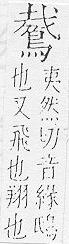 夷然切音緣鴟
也又飛也翔也